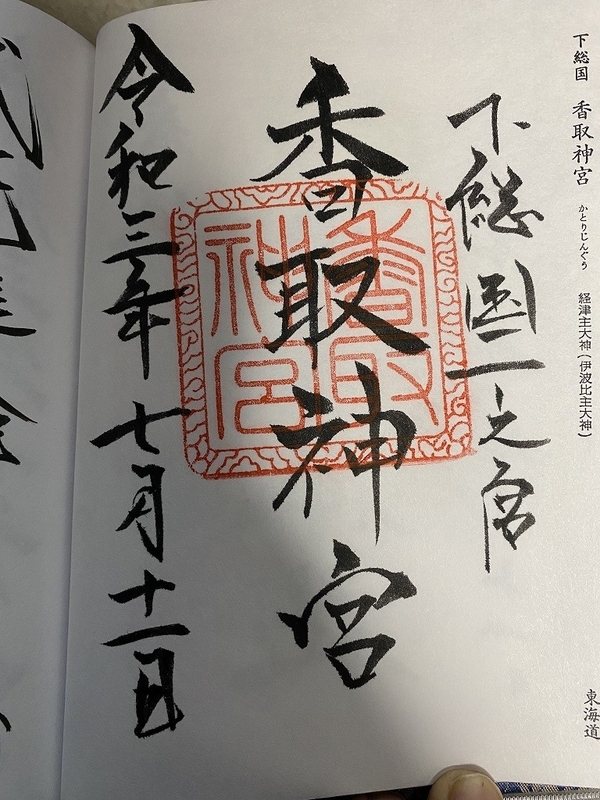 下総国 香取神宮 かとりじんぐう 経津主大神(伊波比主大神)
東海道
下総国一之宮
香取神宮
香取神宮
令和三年七月十一日